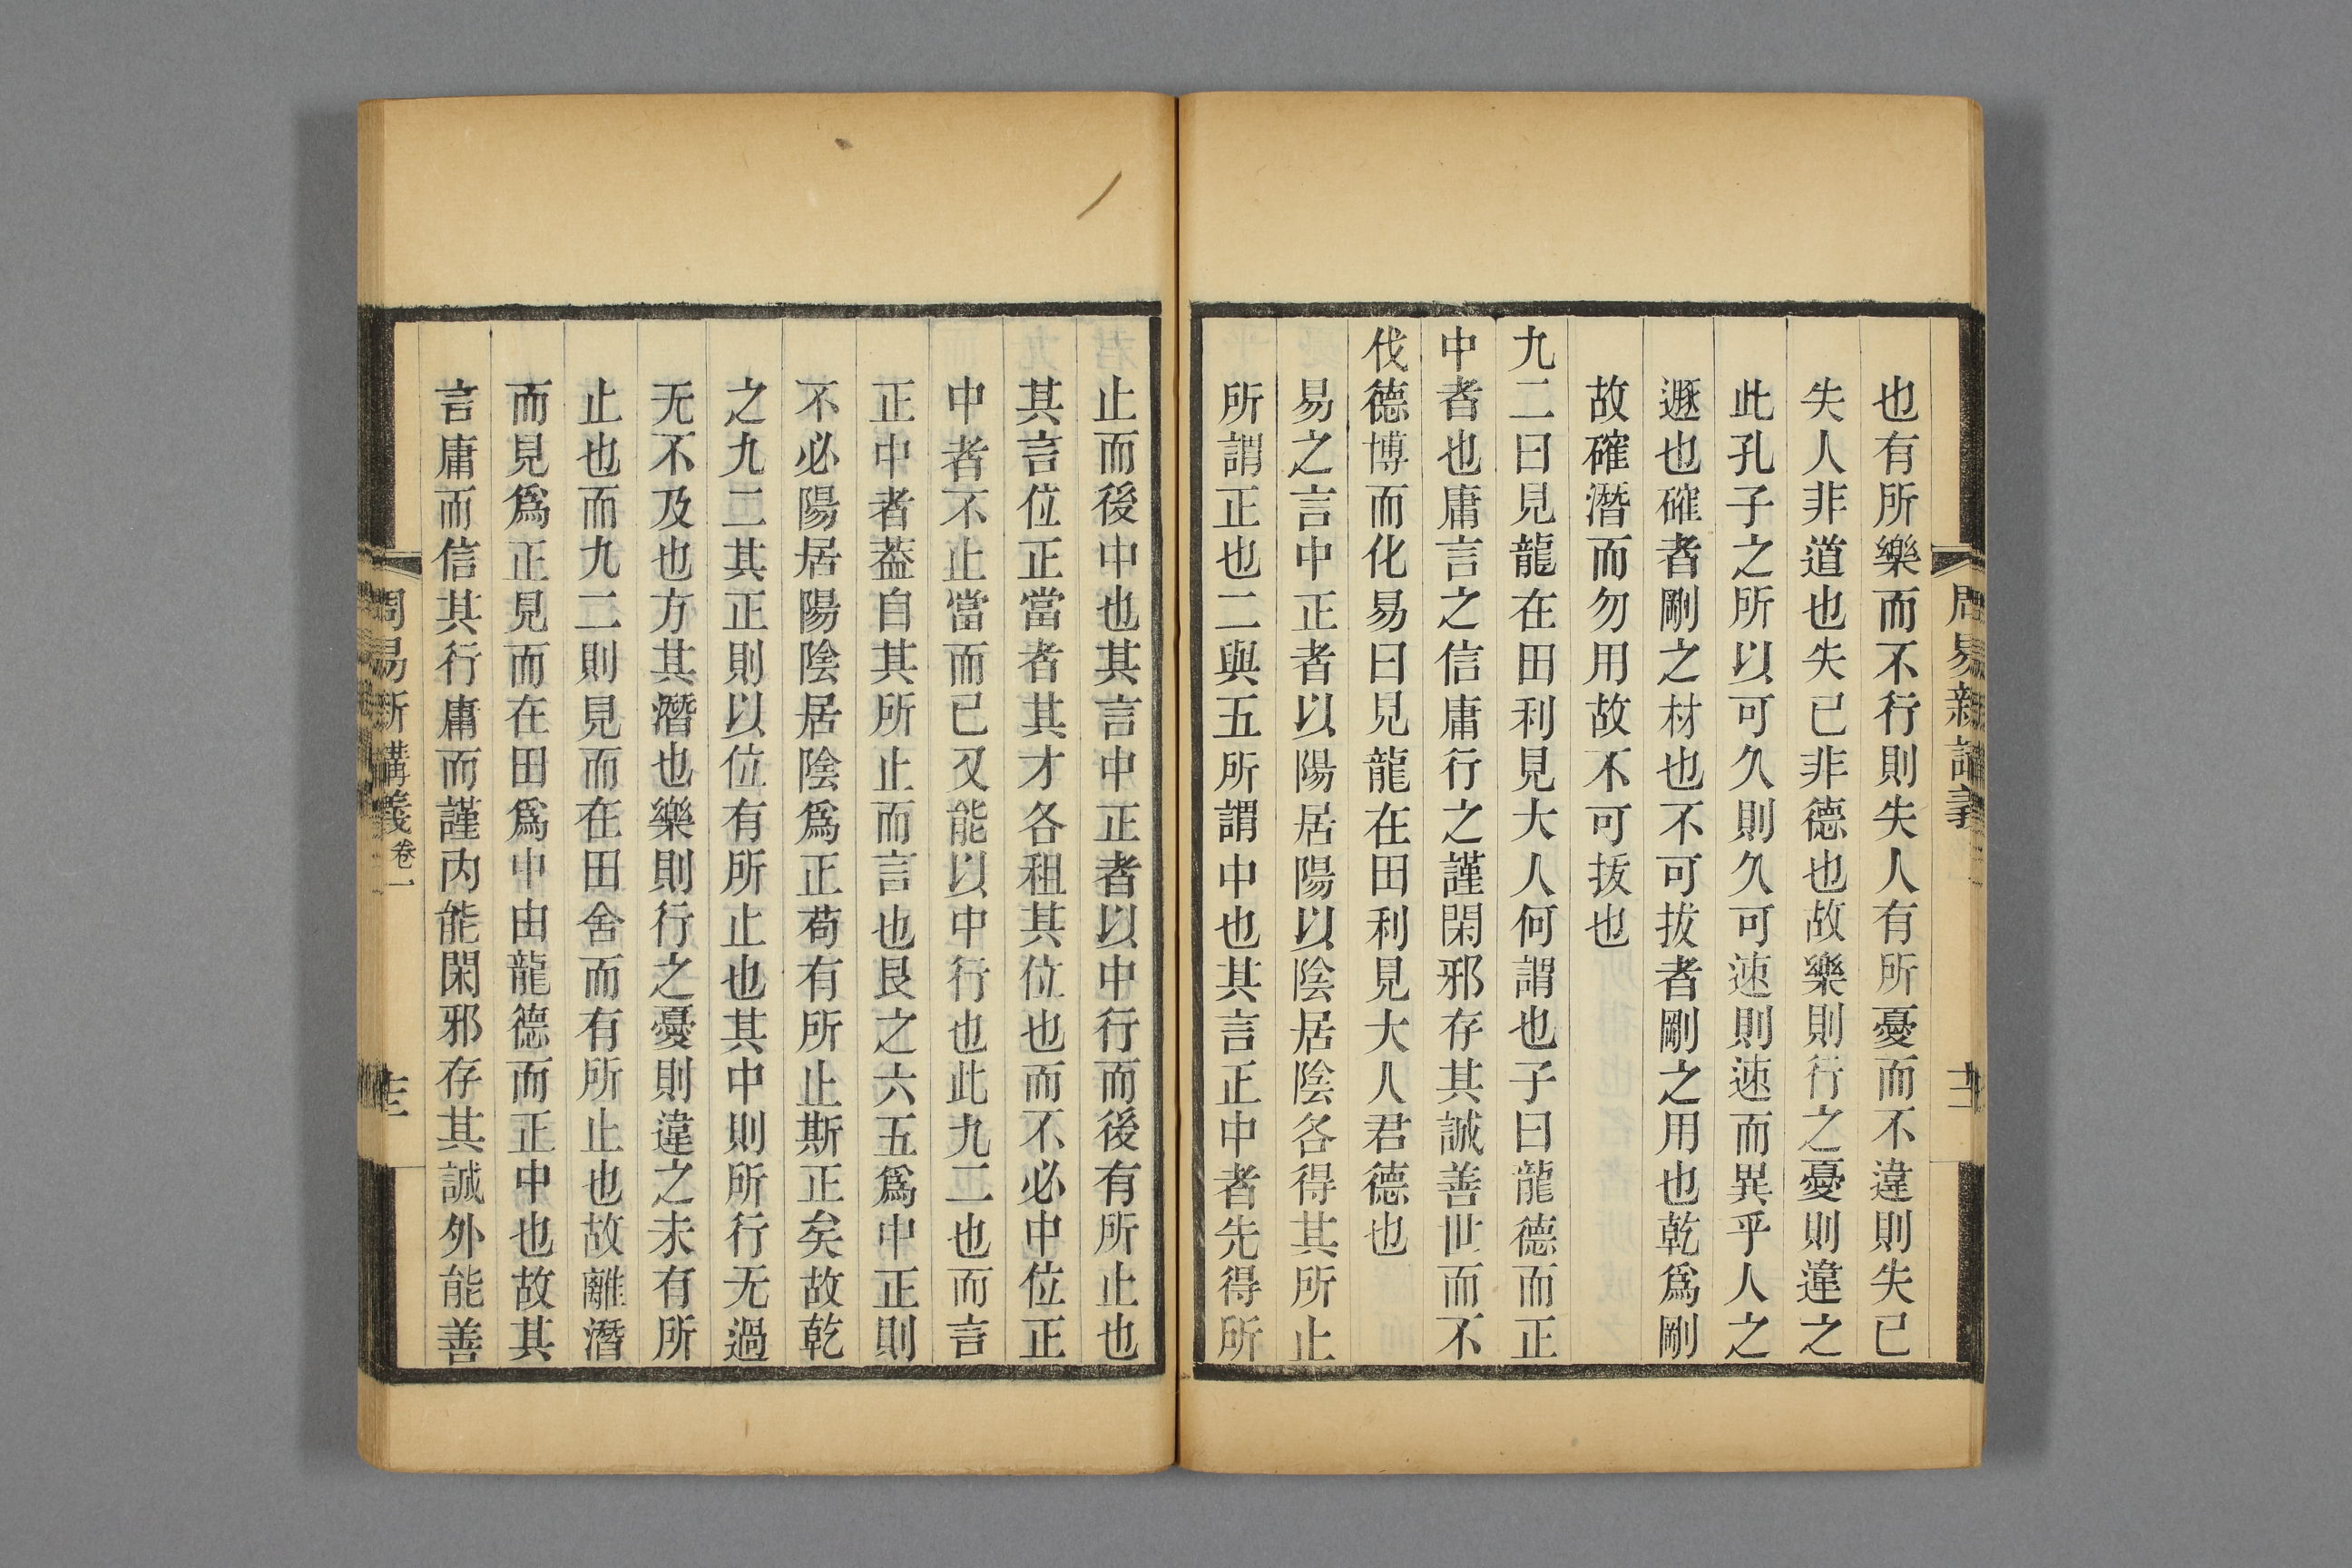 周易新講義
十二
也有所樂而不行則失人有所憂而不違則失已
失人非道也失已非德也故樂則行之憂則違之
此孔子之所以可久則久可速則速而異乎人之
遯也確者剛之材也不可拔者剛之用也乾爲剛
故確潛而勿用故不可拔也
九二曰見龍在田利見大人何謂也子曰龍德而正
中者也庸言之信庸行之謹閑邪存其誠善世而不
伐德博而化易曰見龍在田利見大人君德也
易之言中正者以陽居陽以陰居陰各得其所止
所謂正也二與五所謂中也其言正中者先得所
止而後中也其言中正者以中行而後有所止也
其言位正當者其才各稱其位也而不必中位正
中者不止當而已又能以中行也此九二也而言
正中者葢自其所止而言也艮之六五爲中正則
不必陽居陽陰居陰爲正苟有所止斯正矣故乾
之九二其正則以位有所止也其中則所行无過
无不及也方其潛也樂則行之憂則違之未有所
止也而九二則見而在田舍而有所止也故離潛
而見爲正見而在田爲中由龍德而正中也故其
言庸而信其行庸而謹内能閑邪存其誠外能善
周易新講義 卷一
十三